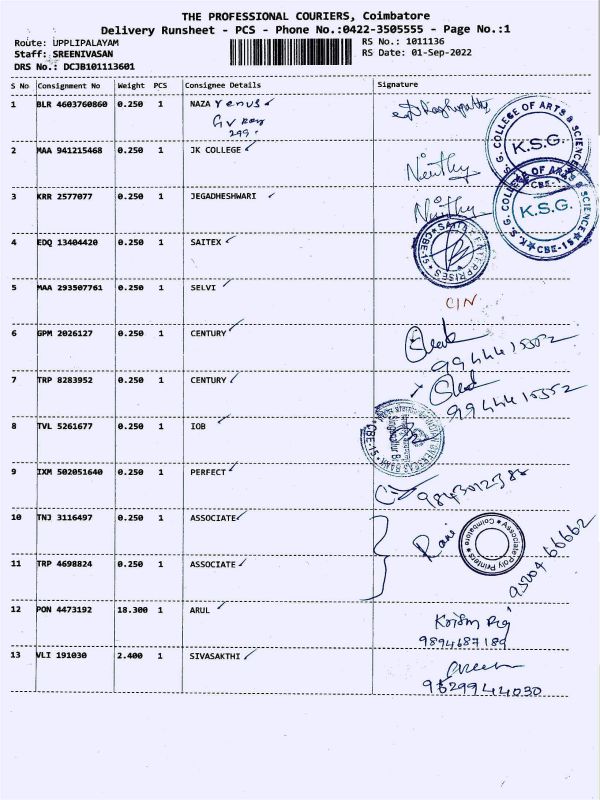 THE PROFESSIONAL COURIERS, Coimbatore
Delivery Runsheet - PCS - Phone No.:0422-3505555 - Page No.:1
Route: UPPLIPALAYAM
Staff: SREENIVASAN
DRS No.: DCJB101113601
RS No.: 1011136
RS Date: 01-Sep-2022
S No Consignment No Weight PCS Consignee Details Signature
1 BLR 4603760860 0.250 1 NAZA venus
G V
299
K.S.G. COLLEGE OF ARTS & SCIENCE
K.S.G.
2 MAA 941215468 0.250 1 JK COLLEGE
K.S.G. COLLEGE OF ARTS & SCIENCE
K.S.G.
CBE-15
3 KRR 2577077 0.250 1 JEGADHESHWARI
4 EDQ 13404420 0.250 1 SAITEX
ENTERPRISES
CBE-15
5 MAA 293507761 0.250 1 SELVI
CIN
6 GPM 2026127 0.250 1 CENTURY
7 TRP 8283952 0.250 1 CENTURY
8 TVL 5261677 0.250 1 IOB
CBE-15
9 IXM 502051640 0.250 1 PERFECT
10 TNJ 3116497 0.250 1 ASSOCIATE
Rani
Associate Poly Printers
Coimbatore
11 TRP 4698824 0.250 1 ASSOCIATE
12 PON 4473192 18.300 1 ARUL
9894687189
13 VLI 191030 2.400 1 SIVASAKTHI
9629944030